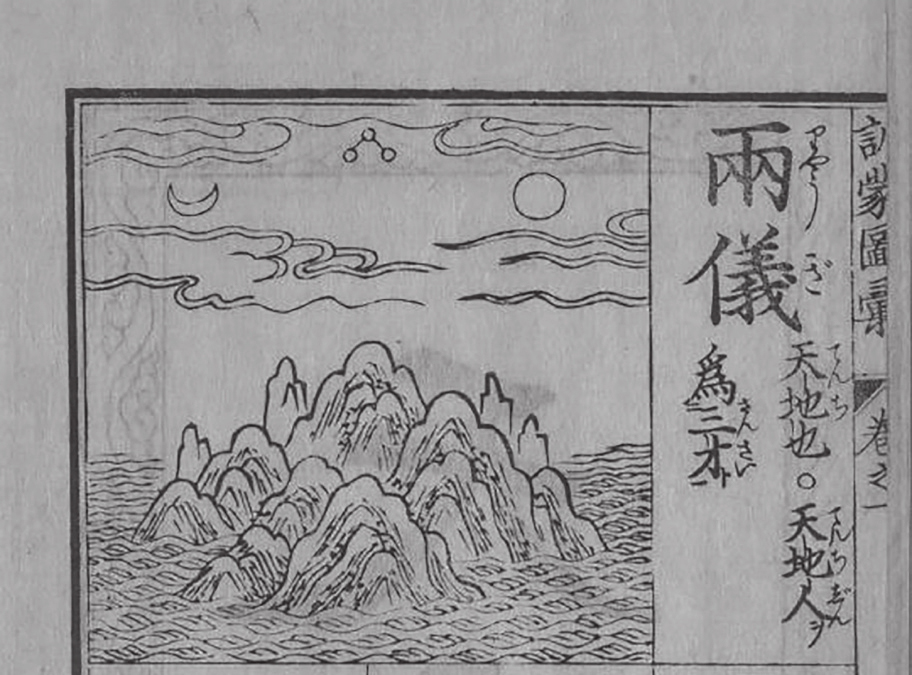 訓蒙圖彙 卷之一
兩儀
りやうぎ
天地也○天地人ヲ
てんち てんちじん
爲三才ト
さんさい